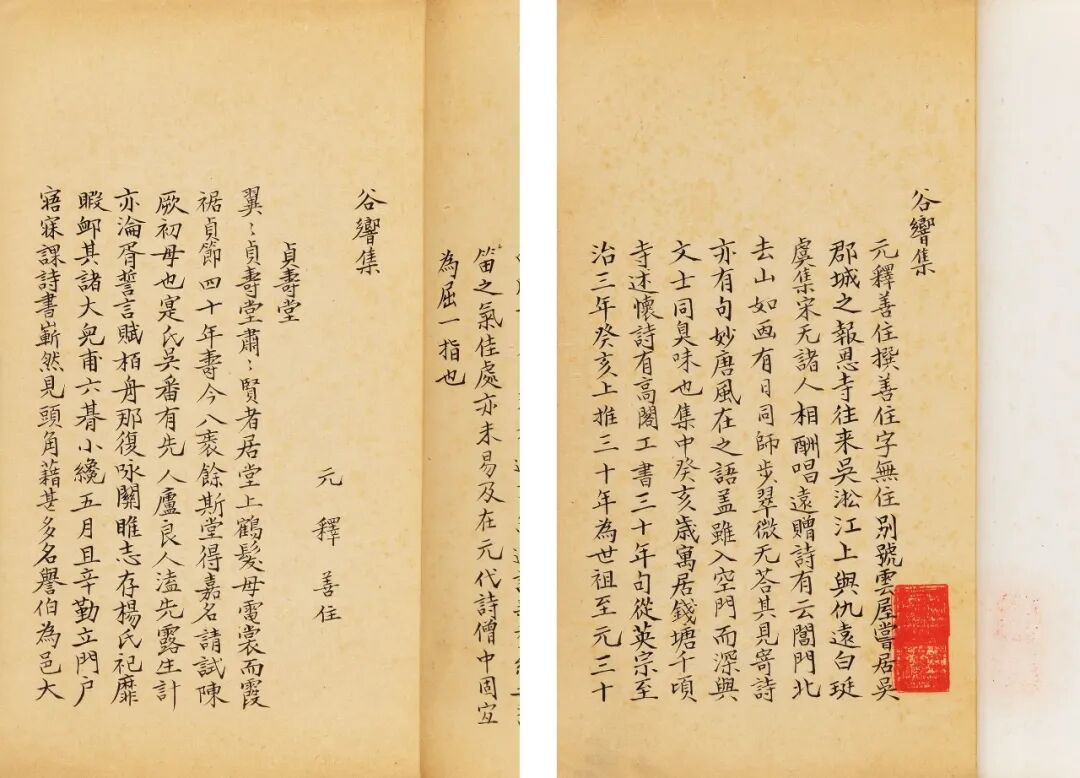 谷響集
元釋善住撰善住字無住别號雲屋嘗居吳
郡城之報恩寺往来吳淞江上與仇遠白珽
虞集宋无諸人相酬唱遠贈詩有云閶門北
去山如画有日同師步翠微无荅其見寄詩
亦有句妙唐風在之語盖雖入空門而深與
文士同臭味也集中癸亥歲寓居錢塘千頃
寺述懷詩有高閣工書三十年句從英宗至
治三年癸亥上推三十年為世祖至元三十
笛之氣佳處亦未易及在元代詩僧中固宜
為屈一指也
谷響集
元釋善住
貞壽堂
翼〻貞壽堂肅〻賢者居堂上鶴髮母霓裳而霞
裾貞節四十年壽今八袠餘斯堂得嘉名請試陳
厥初母也寔氏吳番有先人廬良人溘先露生計
亦淪胥誓言賦栢舟那復咏關雎志存揚氏祀靡
暇卹其諸大兒甫六朞小纔五月且辛勤立門户
寤寐課詩書嶄然見頭角藉甚多名譽伯為邑大